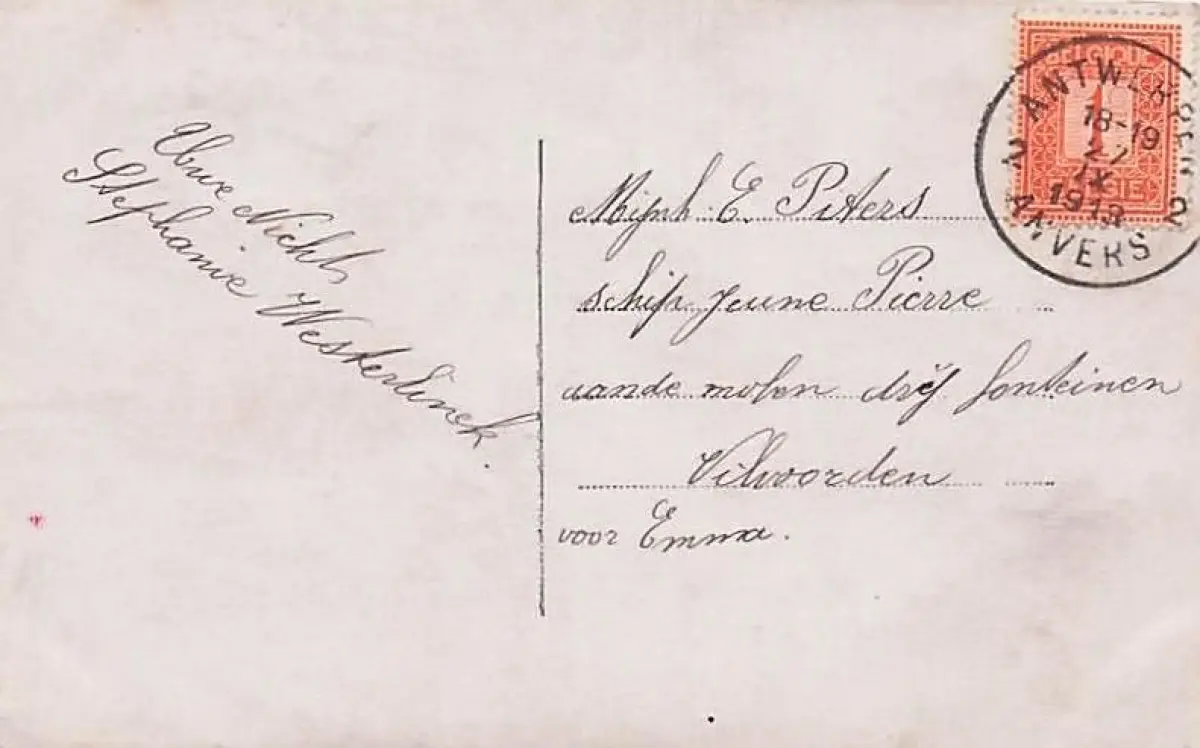 Uwe Nicht
Stephanie Westerlinck.
BELGIQUE
1
BELGIE
ANTWERPEN
18-19
27
IX
1913
2 2
ANVERS
Mijnh. E. Piters
schip Jeune Pierre
aande molen drij fonteinen
Vilvoorden
voor Emma.